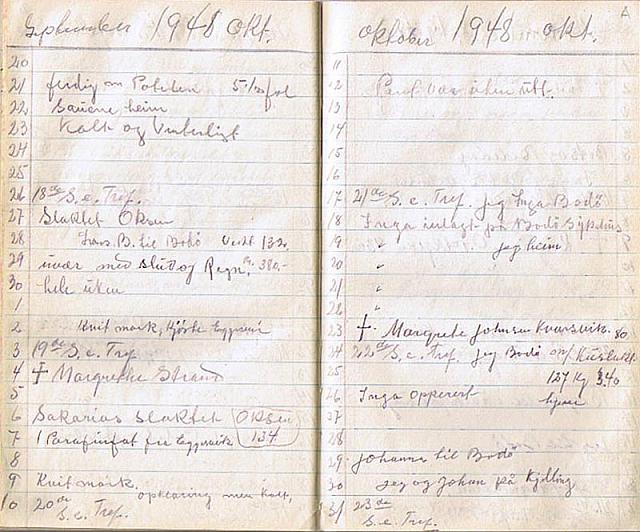 September 1948 Okt.
20
21 ferdig m Poteten 5 1/2 fat
22 Sauene heim
23 Kalt og Vinterligt
24
25
26 18de S. e. Tref.
27 Slaktet Oksen
28 Trans. B. til Bodö Vekt 132
29 uvær med Slud og Regn, 380,-
30 hele uken
1
2 Kvit mark,
3 19de S. e. Tref
4 † Margrethe Strand
5
6 Sakarias Slaktet Oksen
7 1 Parafinfat fra 134
8
9 Kvit mark,
opklaring men kalt,
10 20de S. e. Tref.
Oktober 1948 Okt.
A
11
12 Paul var uken utt.
13
14
15
16
17 21de S. e. Tref. jeg Inga Bodö
18 Inga inlagt på Bodö Sykehus
19 " jeg heim
20 "
21 "
22 "
23 †. Margrethe Johnsen Kvarsvik. 80
24 22de S. e. Tref. jeg Bodö
25 127 Kg 3.40
26 Inga opperert
27
28
29 Johanna til Bodö
30 Jeg og Johan på Kjelling
31 23de S. e. Tref.